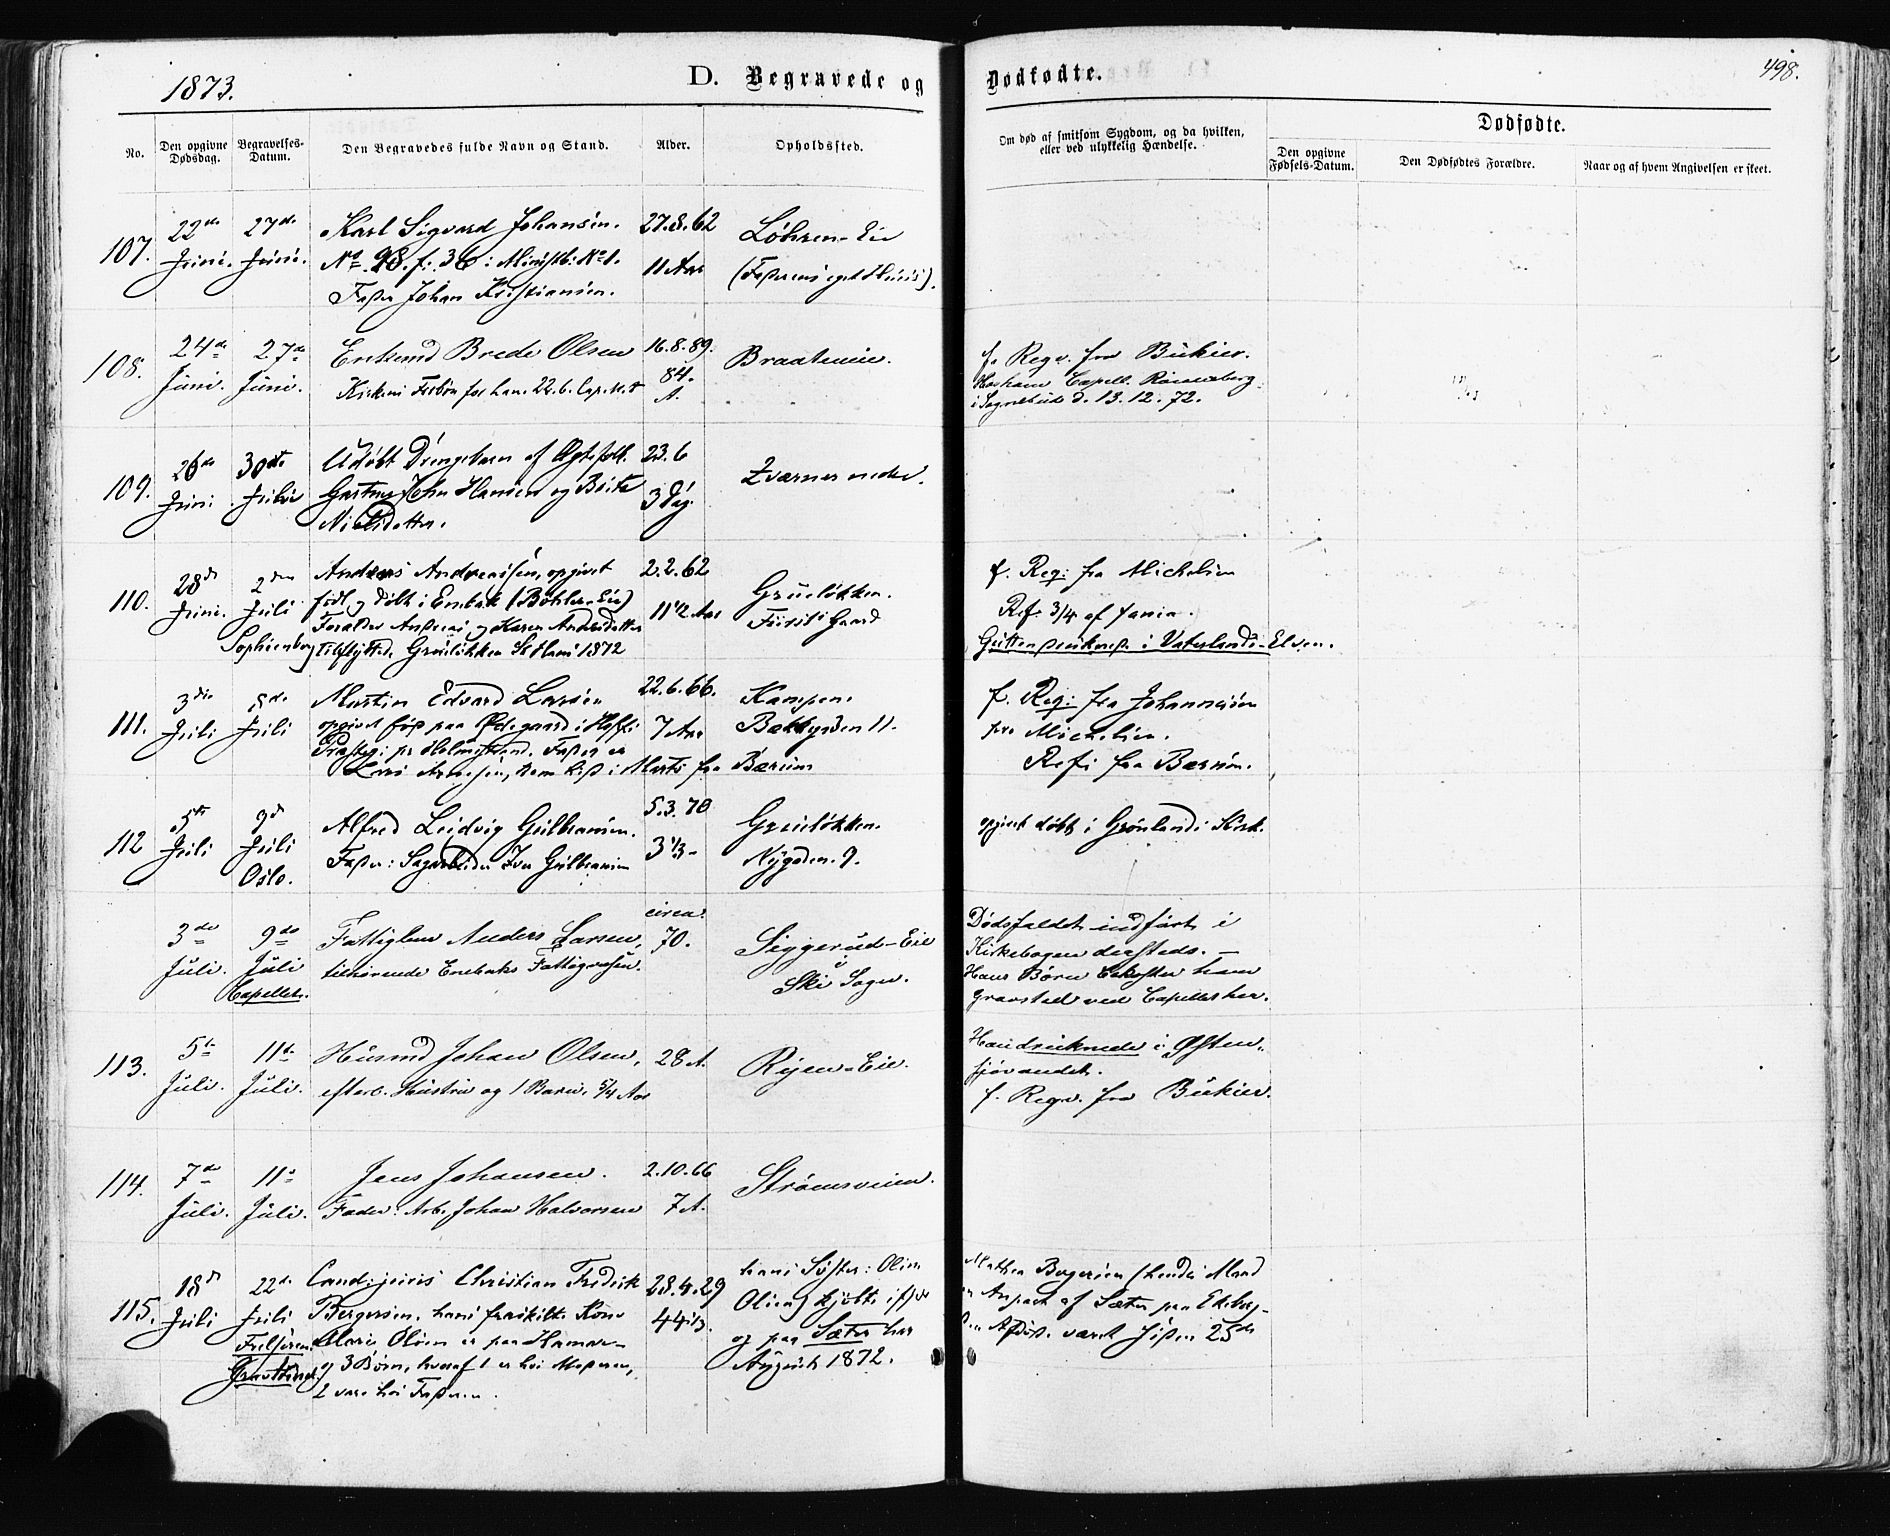 1873.
D. Begravede og Dødfødte.
498.
No.
Den opgivne Dødsdag.
Begravelses-Datum.
Den Begravedes fulde Navn og Stand.
Alder.
Opholdssted.
Om død af smitsom Sygdom, og da hvilken,
eller ved ulykkelig Hændelse.
Dødfødte.
Den opgivne Fødsels-Datum.
Den Dødfødtes Forældre.
Naar og af hvem Angivelsen er skeet.
107.
22de Juni.
27de Juni.
Karl Sigvard Johansen.
No. 98. f. 36: Ministb. No 1.
Fader Johan Kristiansen.
27.8.62
11 Aar
Løhren-Eie
108.
24de Juni.
27de Juni.
Enkemd Brede Olsen
16.8.89.
84. A.
Braateneie.
f. Regn. fra Bukier.
i Sognebud d. 13.12.72.
109.
26de Juni
30de
Udøbt Drengebarn af Ægtefolk
Hansen og
Nielsdatter.
23.6
3 Dag.
Kværner nedre.
110.
28de Juni.
2den Juli
Sophienberg
Anders Andreassen, opgivet
født og døbt i Enebak (Bøhler-Eie)
Forældre Andreas og Karen Andersdatter
tilflyttede Grünløkken St Hans 1872
2.2.62
11 1/2 Aar
Grünløkken.
Gaard
f. Reg: fra Michelsen
Ref. 3/4 af
Gutten druknede i Vaterlands-Elven.
111.
3die Juli
8de Juli
Martin Edvard Larsen
opgivet født paa Ødegaard i
Præstegj: pr Holmestrand. Fader er
Lars som kist i Marts fra Bærum
22.6.66.
7 Aar
Kampen.
11.
f. Reg: fra Johannesen
fra Michelsen.
Ref: fra Bærum.
112
5te Juli
9de Juli
Oslo.
Alfred Ludvig Gulbransen.
Fader: Sagarbeider Iver Gulbransen
5.3.70
3 1/3 -
Grünløkken.
Nygaden. 9.
opgivet døbt i Grønlands Kirk.
3de Juli.
9de Juli
Capellet.
Fattiglem Anders Larsen,
tilhørende Enebaks Fattigvæsen.
circa
70.
Siggerud-Eie
i
Ski Sogn.
Dødsfaldet indført i
Kirkebogen dersteds. —
Hans Børn bekoster ham
gravsted ved Capellet her.
113.
5te Juli.
11te Juli.
Husmd Johan Olsen,
efterl. Hustru og 1 Barn. 5/4 Aar
28 A.
Ryen-Eie.
Han druknede i Østen-
sjøvandet.
f. Regn. fra Bukier.
114.
7de Juli.
11te Juli.
Jens Johansen.
Fader: Arb. Johan Halvorsen
2.10.66
7 A.
Strømsveien.
115.
18de Juli
22de Juli
Frelserens
Gravlund.
Cand: juris Christian Fredrik
Bergersen. hans fraskilte Kone
Marie Olsen er paa Hamar-
og 3 Børn, hvoraf 1 er hos Moderen,
2 vare hos Faderen.
28.4.29
44 1/3.
hans Søster: Oline
og paa Sæter har
August 1872.
Mathea Bergersen (hendes Mand
Anpart af Sæter paa Ekeberg-
25de